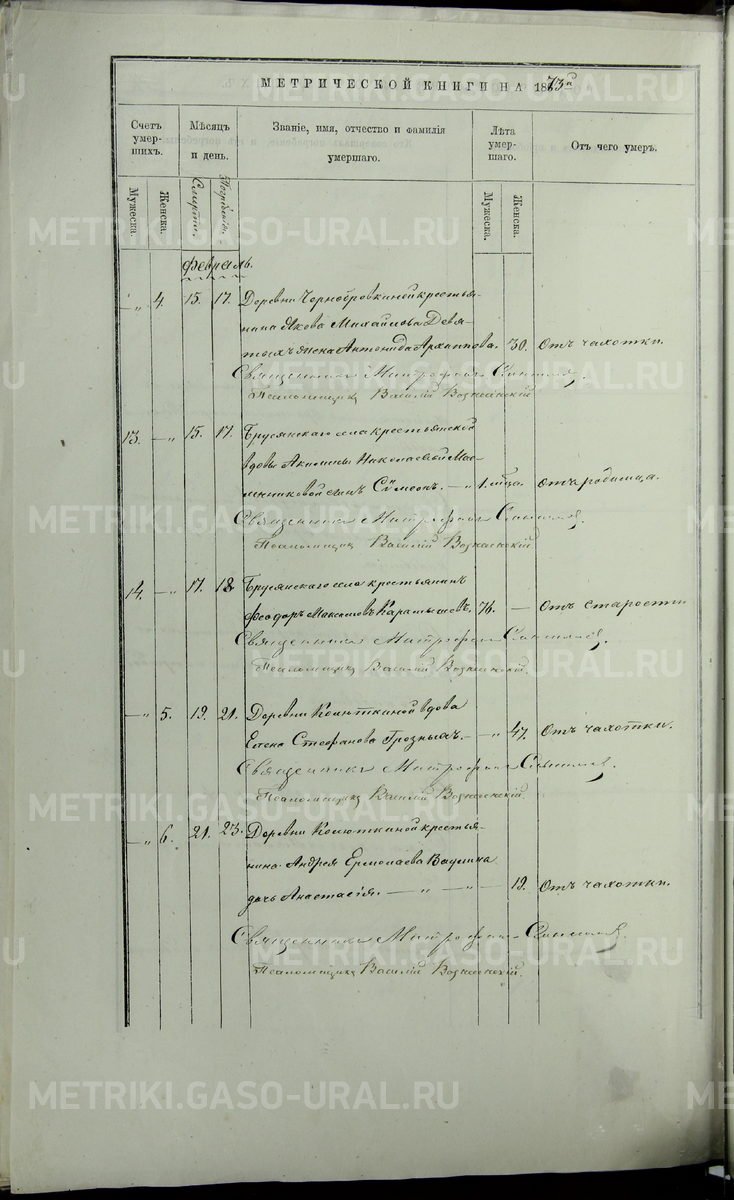 МЕТРИЧЕСКОЙ КНИГИ НА 1873 г.
Счетъ умер- шихъ.
Мужеска. Женска.
Мѣсяцъ и день.
Смерти. Погребенія.
Званіе, имя, отчество и фамилія умершаго.
Лѣта умер- шаго.
Мужеска. Женска.
Отъ чего умеръ.
Февраль.
— „ 4. 15. 17. Деревни Чернобровкиной крестья-
нина Якова Михайлова Девя-
тыхъ жена Антонида Архипова. 30. Отъ чахотки.
Священникъ Митрофанъ
Псаломщикъ Василій Вознесенскій
13. — „ 15. 17. Брусянскаго села крестьянской
вдовы Акилины Николаевой Мас-
ленниковой сынъ Сѵмеонъ. — „ 1. мѣсяца. отъ родимца.
Священникъ Митрофанъ
Псаломщикъ Василій Вознесенскій
14. — „ 17. 18. Брусянскаго села крестьянинъ
Феодоръ Максимовъ Карамышевъ. 76. — Отъ старости
Священникъ Митрофанъ
Псаломщикъ Василій Вознесенскій.
— „ 5. 19. 21. Деревни Колюткиной вдова
Елена Стефанова Грозныхъ. — „ 47. Отъ чахотки.
Священникъ Митрофанъ
Псаломщикъ Василій Вознесенскій
— „ 6. 21. 23. Деревни Колюткиной крестья-
нина Андрея Ермолаева Ваулина
дочь Анастасія. — „ — „ — 19. Отъ чахотки.
Священникъ Митрофанъ
Псаломщикъ Василій Вознесенскій.
METRIKI.GASO-URAL.RU